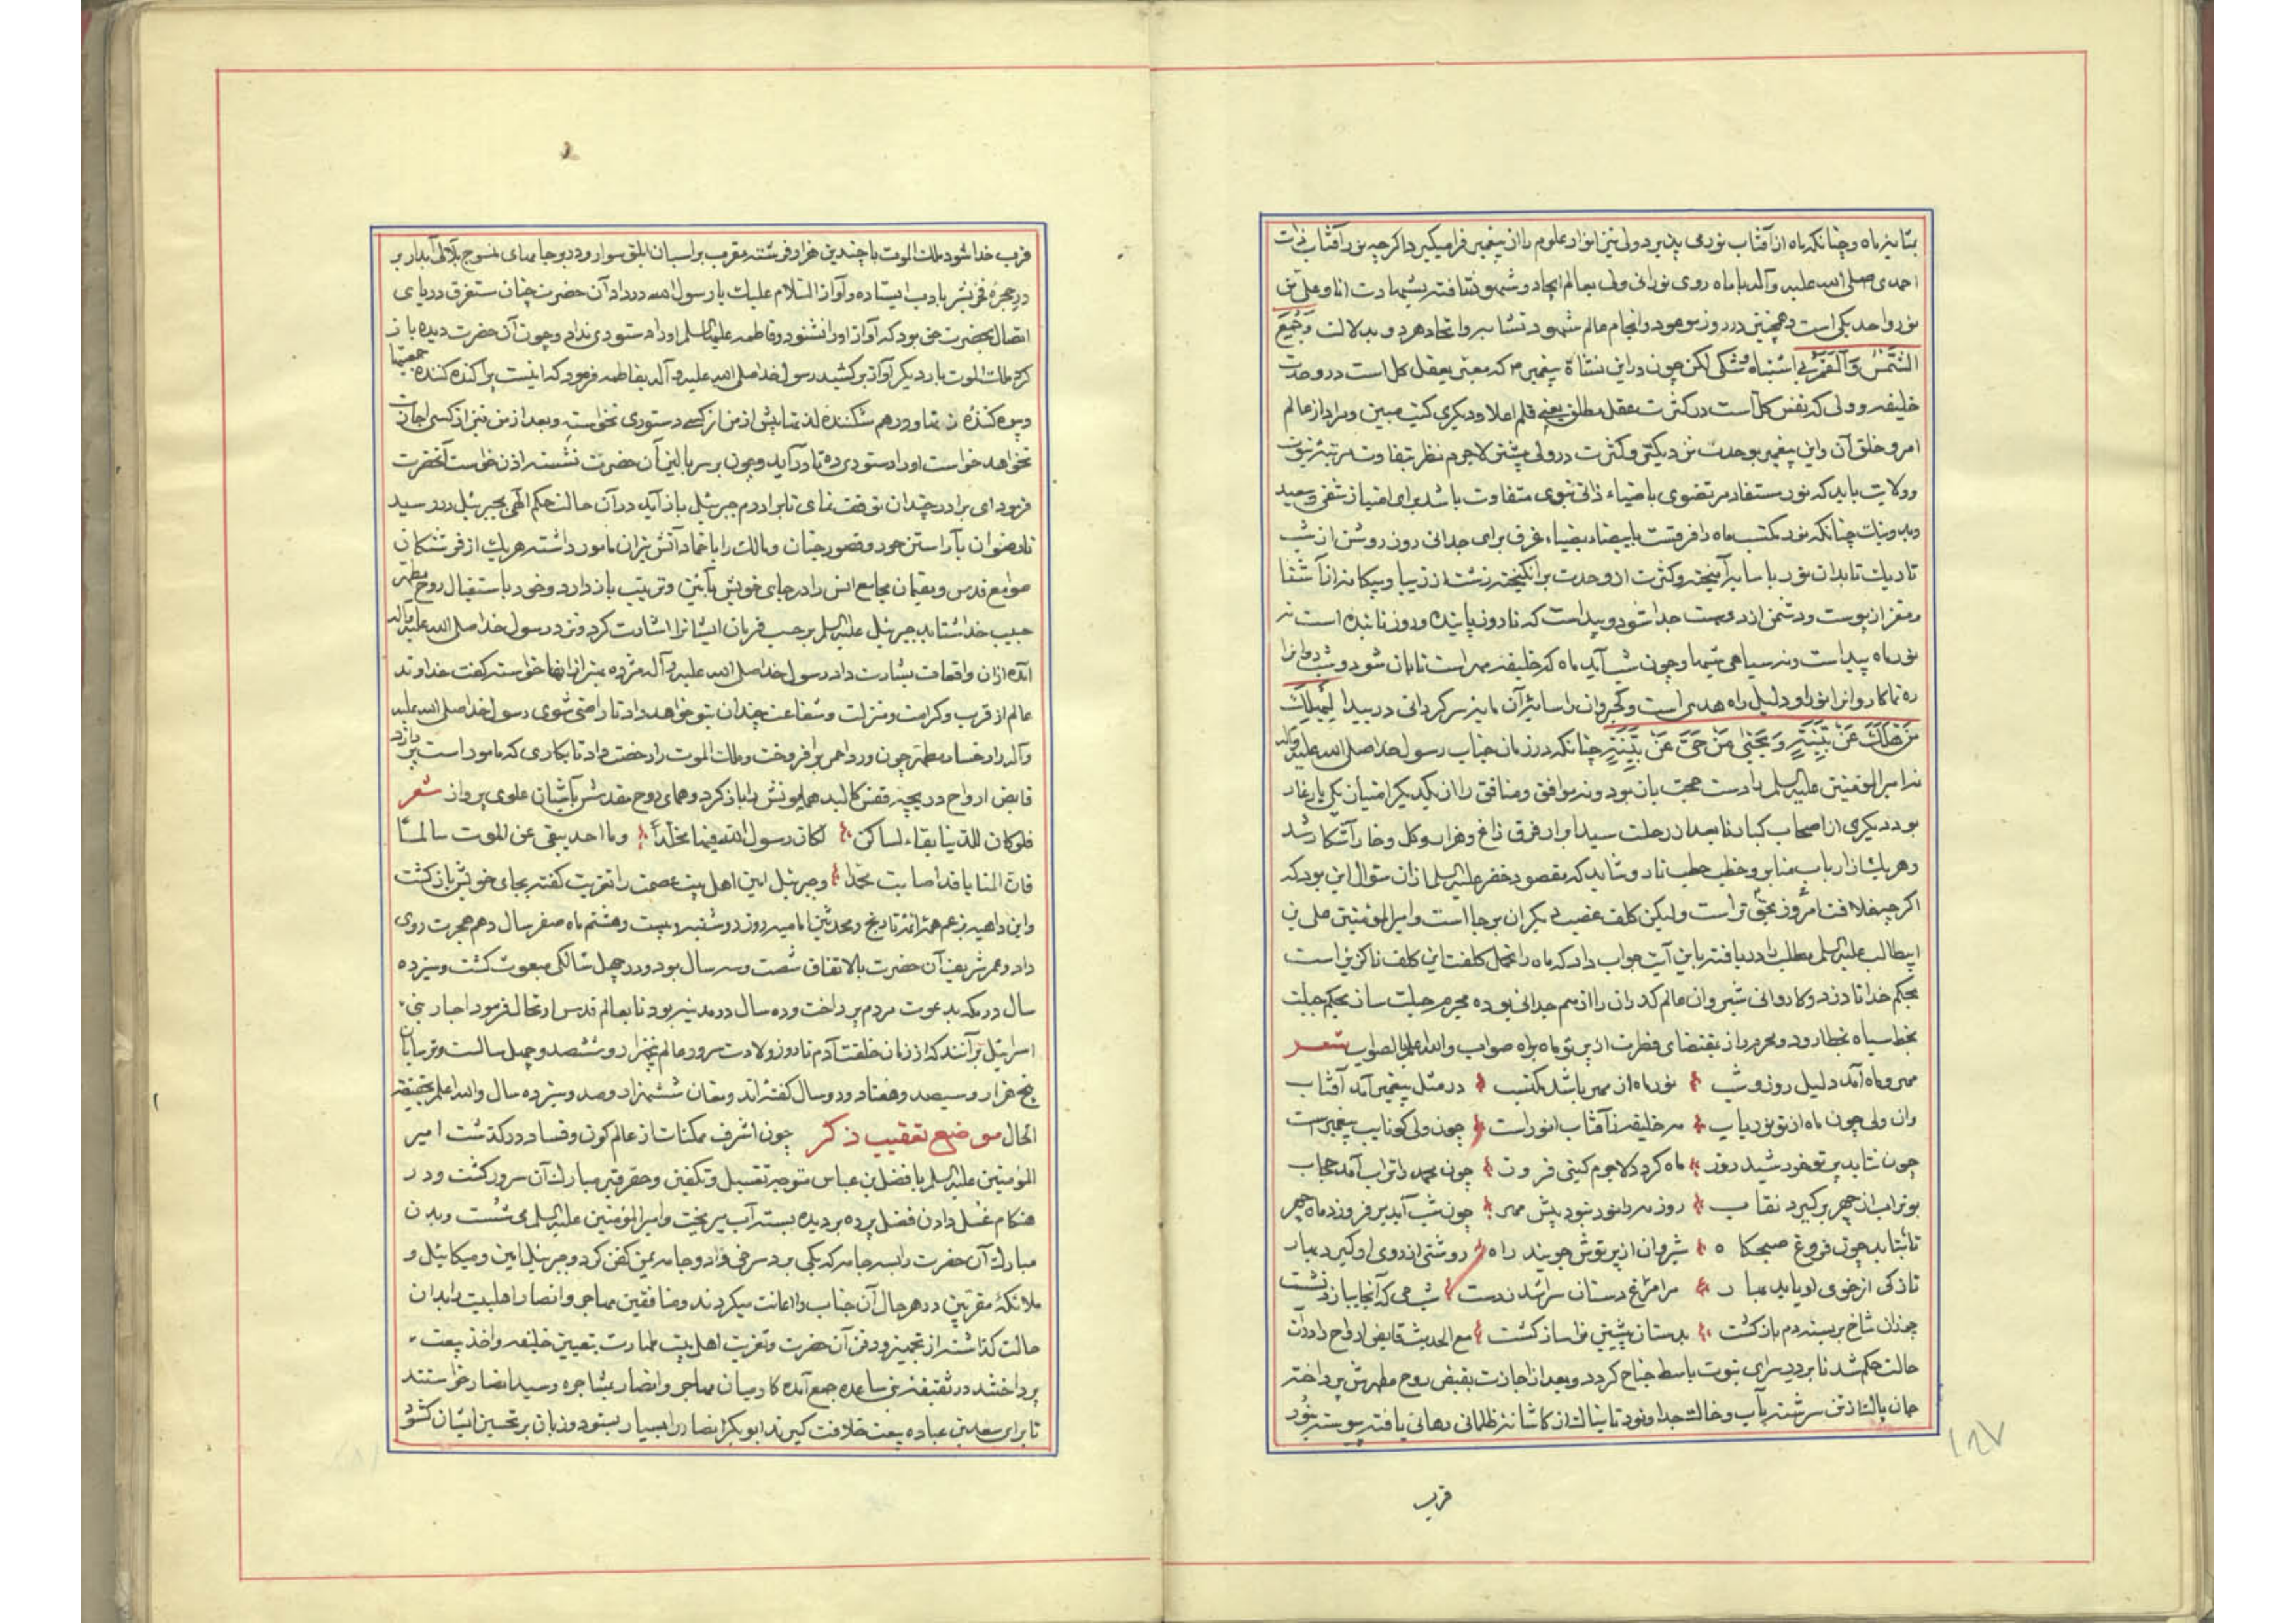 بمثابه ماه و چنانکه ماه از آفتاب نور می پذیرد ولی نیز انوار علوم را از پیغمبر فرا میگیرد اگر چه نور آفتاب ذات
احمدی صلی الله علیه و آله با ماه روی نورانی ولی بعالم ایجاد و شهود نتافته بشهادت انا و علی من
نور واحد یکی است و همچنین در روز موعود و انجام عالم شهود تشابه و اتحاد هر دو بدلالت وَجُمِعَ
الشَّمْسُ وَالْقَمَرُ بی اشتباه و شکی لکن چون در این نشأة پیغمبر که معنی بعقل کل است در وحدت
خلیفه و ولی که نفس کل است در کثرت عقل مطلق یعنی قلم اعلا و دیگری کتاب مبین و مراد از عالم
امر و خلق آن و این پیغمبر بوحدت نزدیکتر و کثرت در ولی بیشتر لاجرم نظر بتفاوت مرتبه نبوت
و ولایت باید که نور مستفاد مرتضوی با ضیاء ذاتی نبوی متفاوت باشد برای امتیاز شقی و سعید
و بد و نیک چنانکه نور مکتسب ماه را فرقست با بیضاء بیضاء غرق برای جدائی روز روشن از شب
تاریک تا بدان نور با سایه آمیخته و کثرت از وحدت برانگیخته زشت از زیبا و بیگانه از آشنا
و مغز از پوست و دشمن از دوست جدا شود و پیداست که تا روز پاینده و روز تابنده است نه
نور ماه پیداست و نه سیاهی شبها و چون شب آید ماه که خلیفه مهر است تابان شود و شب روانرا
ره نما کاروانرا نور او دلیل راه هدی است و کجروان را سایه آن مایه سرگردانی در بیدا لِیَهْلِكَ
مَنْ هَلَكَ عَنْ بَیِّنَةٍ وَ یَحْیٰی مَنْ حَیَّ عَنْ بَیِّنَةٍ چنانکه در زمان جناب رسول خدا صلی الله علیه و آله
نه امیر المؤمنین علیه السلم را دست حجت باز بود و نه موافق و منافق را از یکدیگر امتیاز یکی یار غار
بود دیگری از اصحاب کبار تا بعد از رحلت سید ابرار فرق زاغ و هزار و گل و خار آشکار شد
و هر یک از ارباب منابر و خطب حطب نار و شاید که مقصود خضر علیه السلم از آن سؤال این بود که
اگر چه خلافت امروز بحق تر است ولیکن کلف غصب دیگران بر جا است و امیر المؤمنین علی بن
ابیطالب علیه السلم مطلب را دریافته باین آیت جواب داد که ماه را تحمل کلفت این کلف ناگزیر است
بحکم خدا تا دزد و کاروانی شبروان عالم که در آن را از هم جدائی بوده مجرم حیلت ساز بحکم جبلت
بخط سیاه بخطا رود و محرم راز بمقتضای فطرت از پرتو ماه براه صواب والله اعلم بالصواب شعر
مهر و ماه آمد دلیل روز و شب نور ماه از مهر باشد مکتسب در مثل پیغمبر آمد آفتاب
وان ولی چون ماه از نور یاب مه خلیفه آفتاب انور است چون ولی کو نایب پیغمبر است
چون نتابد پرتو خورشید روز ماه گردد لاجرم گیتی فروز چون محمد را تراب آمد حجاب
بوتراب از چهر بر گیرد نقاب روز مه را نور نبود پیش مهر چون شب آید بر فروزد ماه چهر
تا بتابد چون فروغ صبحگاه شبروان از پرتوش جویند راه روشنی از روی او گیرد بهار
تازگی از خوی او یابد بهار مر امرغ دستان سرا شد ز دست شبی که آنجا باز نشست
چمدان شاخ بر بسته دم باز گشت بدستان پیشین نواساز گشت مع الحدیث قابض ارواح را در آن
حالت حکم شد تا بر در سرای نبوت باسط جناح گردد و بعد از اجازت بقبض روح مطهرش پرداخته
جان پاک از تن سرشته بآب و خاک جدا و نور تابناک از کاشانه ظلمانی رهائی یافته پیوسته بنور
قرب
۱۸۷
قرب خدا شود ملک الموت با چندین هزار فرشته مقرب بر اسبان ابلق سوار و در بر جامهای منسوج بلآلی آبدار بر
در حجره فخر بشر بادب ایستاده و آواز السلام علیک یا رسول الله در داد آن حضرت چنان مستغرق دریای
اتصال بحضرت حق بود که آواز او را نشنود و فاطمه علیها السلم او را دستوری نداد و چون آن حضرت دیده باز
کرد ملک الموت بار دیگر آواز بر کشید رسول خدا صلی الله علیه و آله بفاطمه فرمود که اینست پراکنده کننده جمعیتها
و بیوه کننده زنها و در هم شکننده لذتها پیش از من از کسی دستوری نخواسته و بعد از من نیز از کسی اجازت
نخواهد خواست او را دستوری ده تا در آید و چون بر سر بالین آن حضرت نشست اذن خواست آنحضرت
فرمود ای برادر چندان توقف نمای تا برادرم جبرئیل باز آید در آن حالت حکم الهی بجبرئیل در رسید
تا رضوان بآراستن حور و قصور جنان و مالک را باخماد آتش نیران مامور داشته هر یک از فرشتگان
صوامع قدس و مقیمان مجامع انس را در جای خویش بآئین و ترتیب باز دارد و خود باستقبال روح مطهر
حبیب خدا شتابد جبرئیل علیه السلم بر حسب فرمان ایشانرا اشارت کرد و نزد رسول خدا صلی الله علیه و آله
آمده از آن واقعات بشارت داد رسول خدا صلی الله علیه و آله مژده بهتر از اینها خواسته گفت خداوند
عالم از قرب و کرامت و منزلت و شفاعت چندان بتو خواهد داد تا راضی شوی رسول خدا صلی الله علیه
و آله را رخسار مطهر چون ورد احمر بر افروخت و ملک الموت را رخصت داد تا بکاری که مامور است پردازد
قابض ارواح دریچه قفس کالبد همایونش را باز کرد و همای روح مقدسش بآشیان علوی پرواز شعر
فلو کان للدنیا بقاء لساکن لکان رسول الله فیها مخلّداً و ما احد یبقی عن الموت سالماً
فان المنایا قد اصابت محمدا و جبرئیل امین اهل بیت عصمت را تعزیت گفته بجای خویش باز گشت
و این داهیه بزعم همه ائمه تاریخ و محدثین امامیه روز دوشنبه بیست و هشتم ماه صفر سال دهم هجرت روی
داد و عمر شریف آن حضرت بالاتفاق شصت و سه سال بود و در چهل سالگی مبعوث گشت و سیزده
سال در مکه بدعوت مردم پرداخت و ده سال در مدینه بود تا بعالم قدس ارتحال فرمود احبار بنی
اسرائیل بر آنند که از زمان خلقت آدم تا روز ولادت سرور عالم پنجهزار و ششصد و چهل سالست و ترسایان
پنج هزار و سیصد و هفتاد و دو سال گفته اند و مغان ششهزار و صد و سیزده سال والله اعلم بحقیقة
الحال موضع تعقیب ذکر چون اشرف ممکنات از عالم کون و فساد در گذشت امیر
المؤمنین علیه السلم با فضل بن عباس متوجه تغسیل و تکفین و حفر قبر مبارک آن سرور گشت و در
هنگام غسل دادن فضل پرده بر دیده بسته آب میریخت و امیر المؤمنین علیه السلم می شست و بدن
مبارک آن حضرت را بسه جامه که یکی برد سرخی و دو جامه یمن کفن کرد و جبرئیل امین و میکائیل و
ملائکه مقربین در هر حال آن جناب را اعانت میکردند و منافقین مهاجر و انصار اهلبیت را بدان
حالت گذاشته از تجهیز و دفن آن حضرت و تعزیت اهل بیت طهارت بتعیین خلیفه و اخذ بیعت
پرداختند در ثقیفه بنی ساعده جمع آمده کار میان مهاجر و انصار بمشاجره رسید انصار خواستند
تا برای سعد بن عباده بیعت خلافت گیرند ابوبکر انصار را بسیار بستود و زبان بر تحسین ایشان گشود